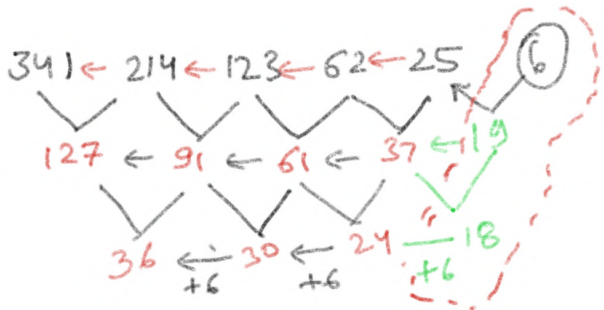 341 ← 214 ← 123 ← 62 ← 25 6
127 ← 91 ← 61 ← 37 ← 19
36 ← 30 ← 24 — 18
+6 +6 +6